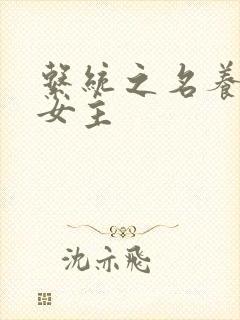 繫統之名養
女主
沈亦飛